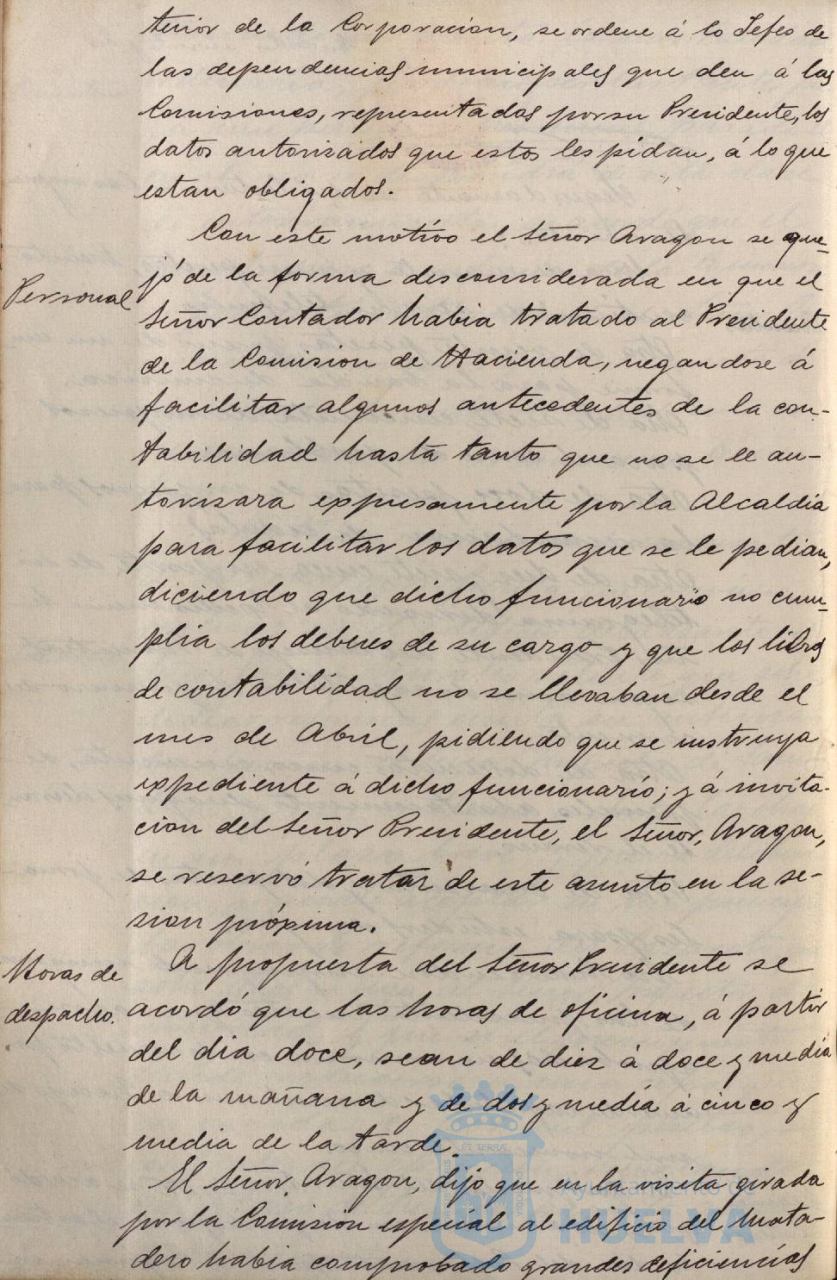 terior de la Corporacion, se ordene á lo Jefes de
las dependencias municipales que den á las
Comisiones, representadas por su Presidente, los
datos autorizados que estos les pidan, á lo que
estan obligados.
Con este motivo el Señor Aragon se que-
Personal
jó de la forma desconsiderada en que el
Señor Contador habia tratado al Presidente
de la Comision de Hacienda, negandose á
facilitar algunos antecedentes de la con-
tabilidad hasta tanto que no se le au-
torizara expresamente por la Alcaldia
para facilitar los datos que se le pedian,
diciendo que dicho funcionario no cum-
plia los deberes de su cargo y que los libros
de contabilidad no se llevaban desde el
mes de Abril, pidiendo que se instruya
expediente á dicho funcionario; y á invita-
cion del Señor Presidente, el Señor, Aragon,
se reservó tratar de este asunto en la se-
sion próxima.
Horas de
despacho.
A propuesta del Señor Presidente se
acordó que las horas de oficina, á partir
del dia doce, sean de diez á doce y media
de la mañana y de dos y media á cinco y
media de la tarde.
El Señor Aragon, dijo que en la visita girada
por la Comision especial al edificio del Mata-
dero habia comprobado grandes deficiencias
Ayuntamiento de
HUELVA